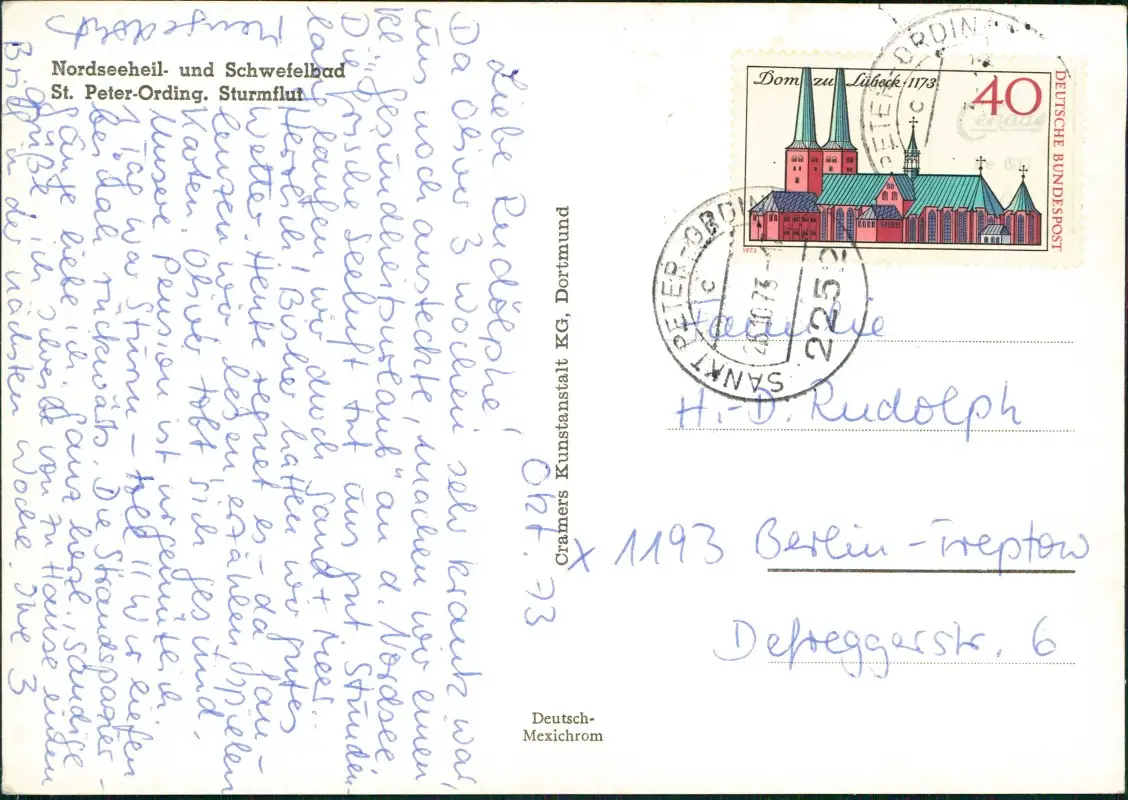 Nordseeheil- und Schwefelbad
St. Peter-Ording. Sturmflut
Okt. 73
Liebe Rudölphe!
Da Oliver 3 Wochen sehr krank war,
uns noch ansteckte, machen wir einen
kl. „Gesundheitsurlaub" an d. Nordsee.
Die frische Seeluft tut uns gut. Stunden-
lang laufen wir durch Sand + Meer.
Herrlich! Bisher hatten wir gutes
Wetter. Heute regnet es – da faul-
lenzen wir, lesen, erzählen, spielen
Karten. Oliver tobt sich gesund.
Unsere Pension ist urgemütlich.
1 Tag war Sturm – toll!! Wir liefen
deshalb rückwärts. Die Strandspazier-
gänge liebe ich. Ganz herzl., sandige
Grüße, ich schreibe von zu Hause einen
Brief in der nächsten Woche. Ihre 3
Cramers Kunstanstalt KG, Dortmund
Deutsch-
Mexichrom
Dom zu Lübeck · 1173
40
DEUTSCHE BUNDESPOST
1973
SANKT PETER-ORDING
c
26.10.73
2252
PETER-ORDING
c
Familie
H.-D. Rudolph
X 1193 Berlin-Treptow
Defreggerstr. 6